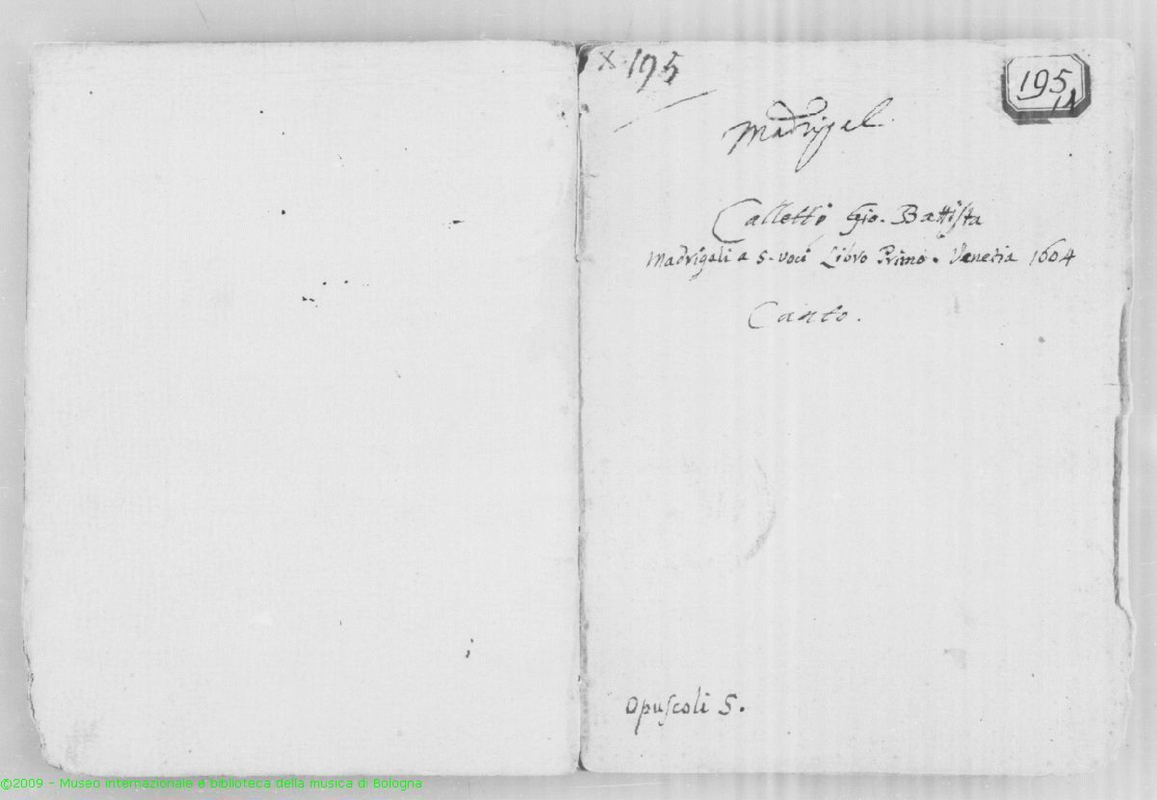 X. 195
195
Madrigal
Calletti Gio. Battista
Madrigali a 5. voci Libro Primo. Venezia 1604
Canto.
Opuscoli 5.
©2009 - Museo internazionale e biblioteca della musica di Bologna